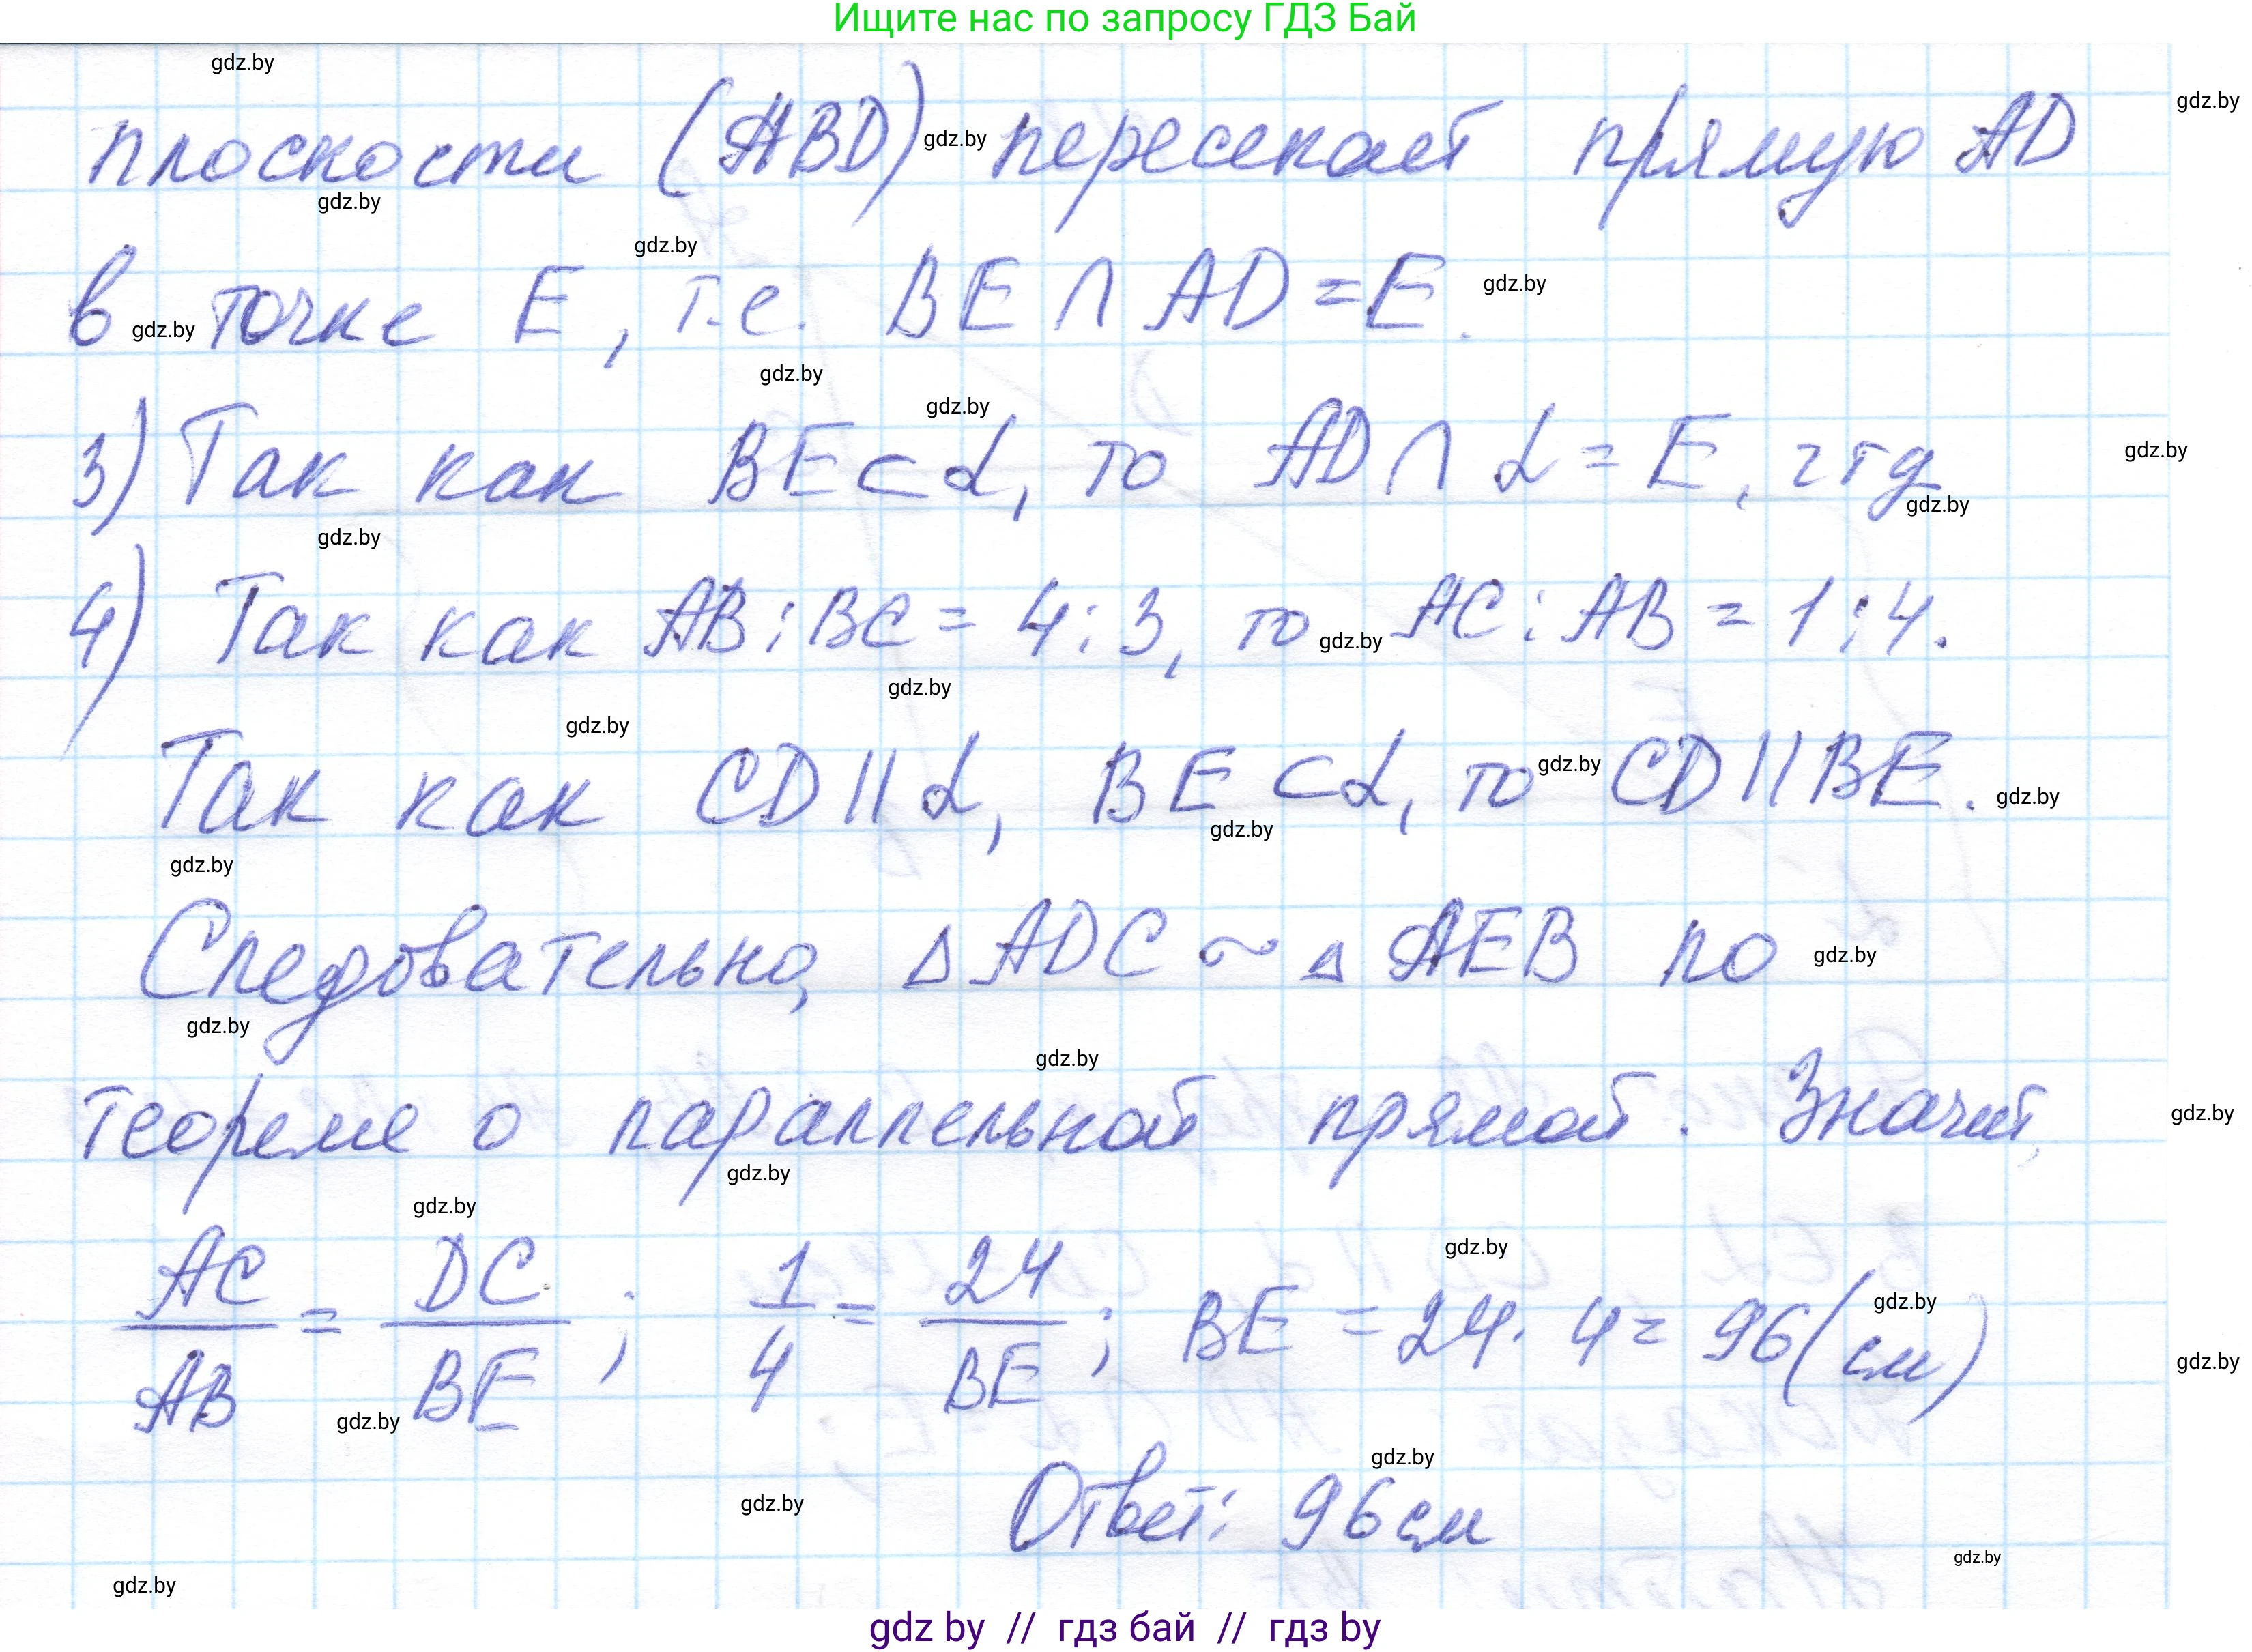 Ищите нас по запросу ГДЗ Бай
gdz.by
gdz.by
плоскости (ABD) gdz.by пересекает прямую AD
gdz.by
gdz.by
в gdz.by точке E, т.е. BE ∩ AD = E. gdz.by
gdz.by
gdz.by
3) Так как BE ⊂ α, то AD ∩ α = E, чтд gdz.by
gdz.by
gdz.by
4) Так как AB : BC = 4 : 3, то gdz.by AC : AB = 1 : 4.
gdz.by
gdz.by
Так как CD || α, BE ⊂ α, то gdz.by CD || BE. gdz.by
gdz.by
gdz.by
Следовательно, △ ADC ~ △ AEB по gdz.by
gdz.by
gdz.by
теореме о параллельной прямой. Значит, gdz.by
gdz.by
gdz.by
gdz.by
AC/AB = DC/BE; 1/4 = 24/BE; BE = 24 · 4 = 96 (см) gdz.by
gdz.by
gdz.by
gdz.by
gdz.by Ответ: 96 см
gdz.by
gdz.by
gdz by // гдз бай // гдз by